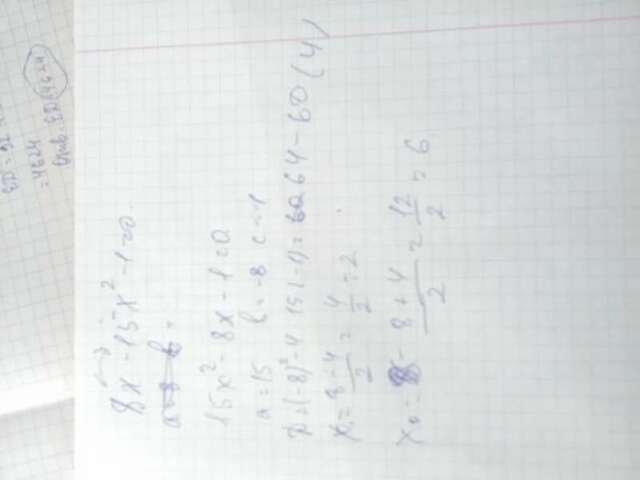 8x - 15x² - 1 = 0.
a = 8 b =
15x² - 8x - 1 = 0
a = 15 b = -8 c = -1
D = (-8)² - 4 · 15 · (-1) = 64 - 60 (4)
x₁ = 8 - 4 / 2 = 4 / 2 = 2
x₂ = 8 + 4 / 2 = 12 / 2 = 6
= 4624